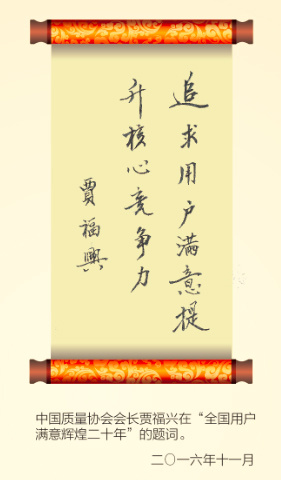 追求用户满意提
升核心竞争力
贾福兴
中国质量协会会长贾福兴在“全国用户
满意辉煌二十年”的题词。
二〇一六年十一月